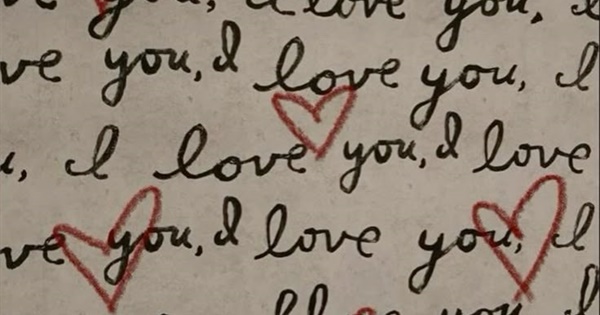 you, I love you, I
ve you, I love you, I
u, I love you, I love
ve you, I love you, I